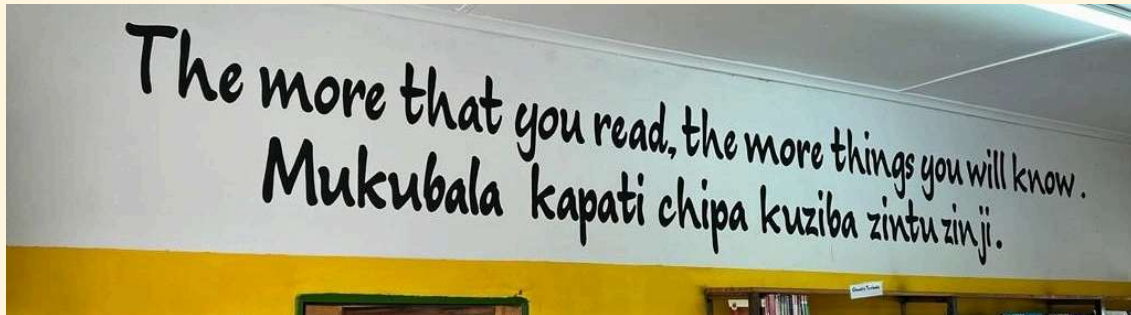 The more that you read, the more things you will know.
Mukubala kapati chipa kuziba zintu zinji.